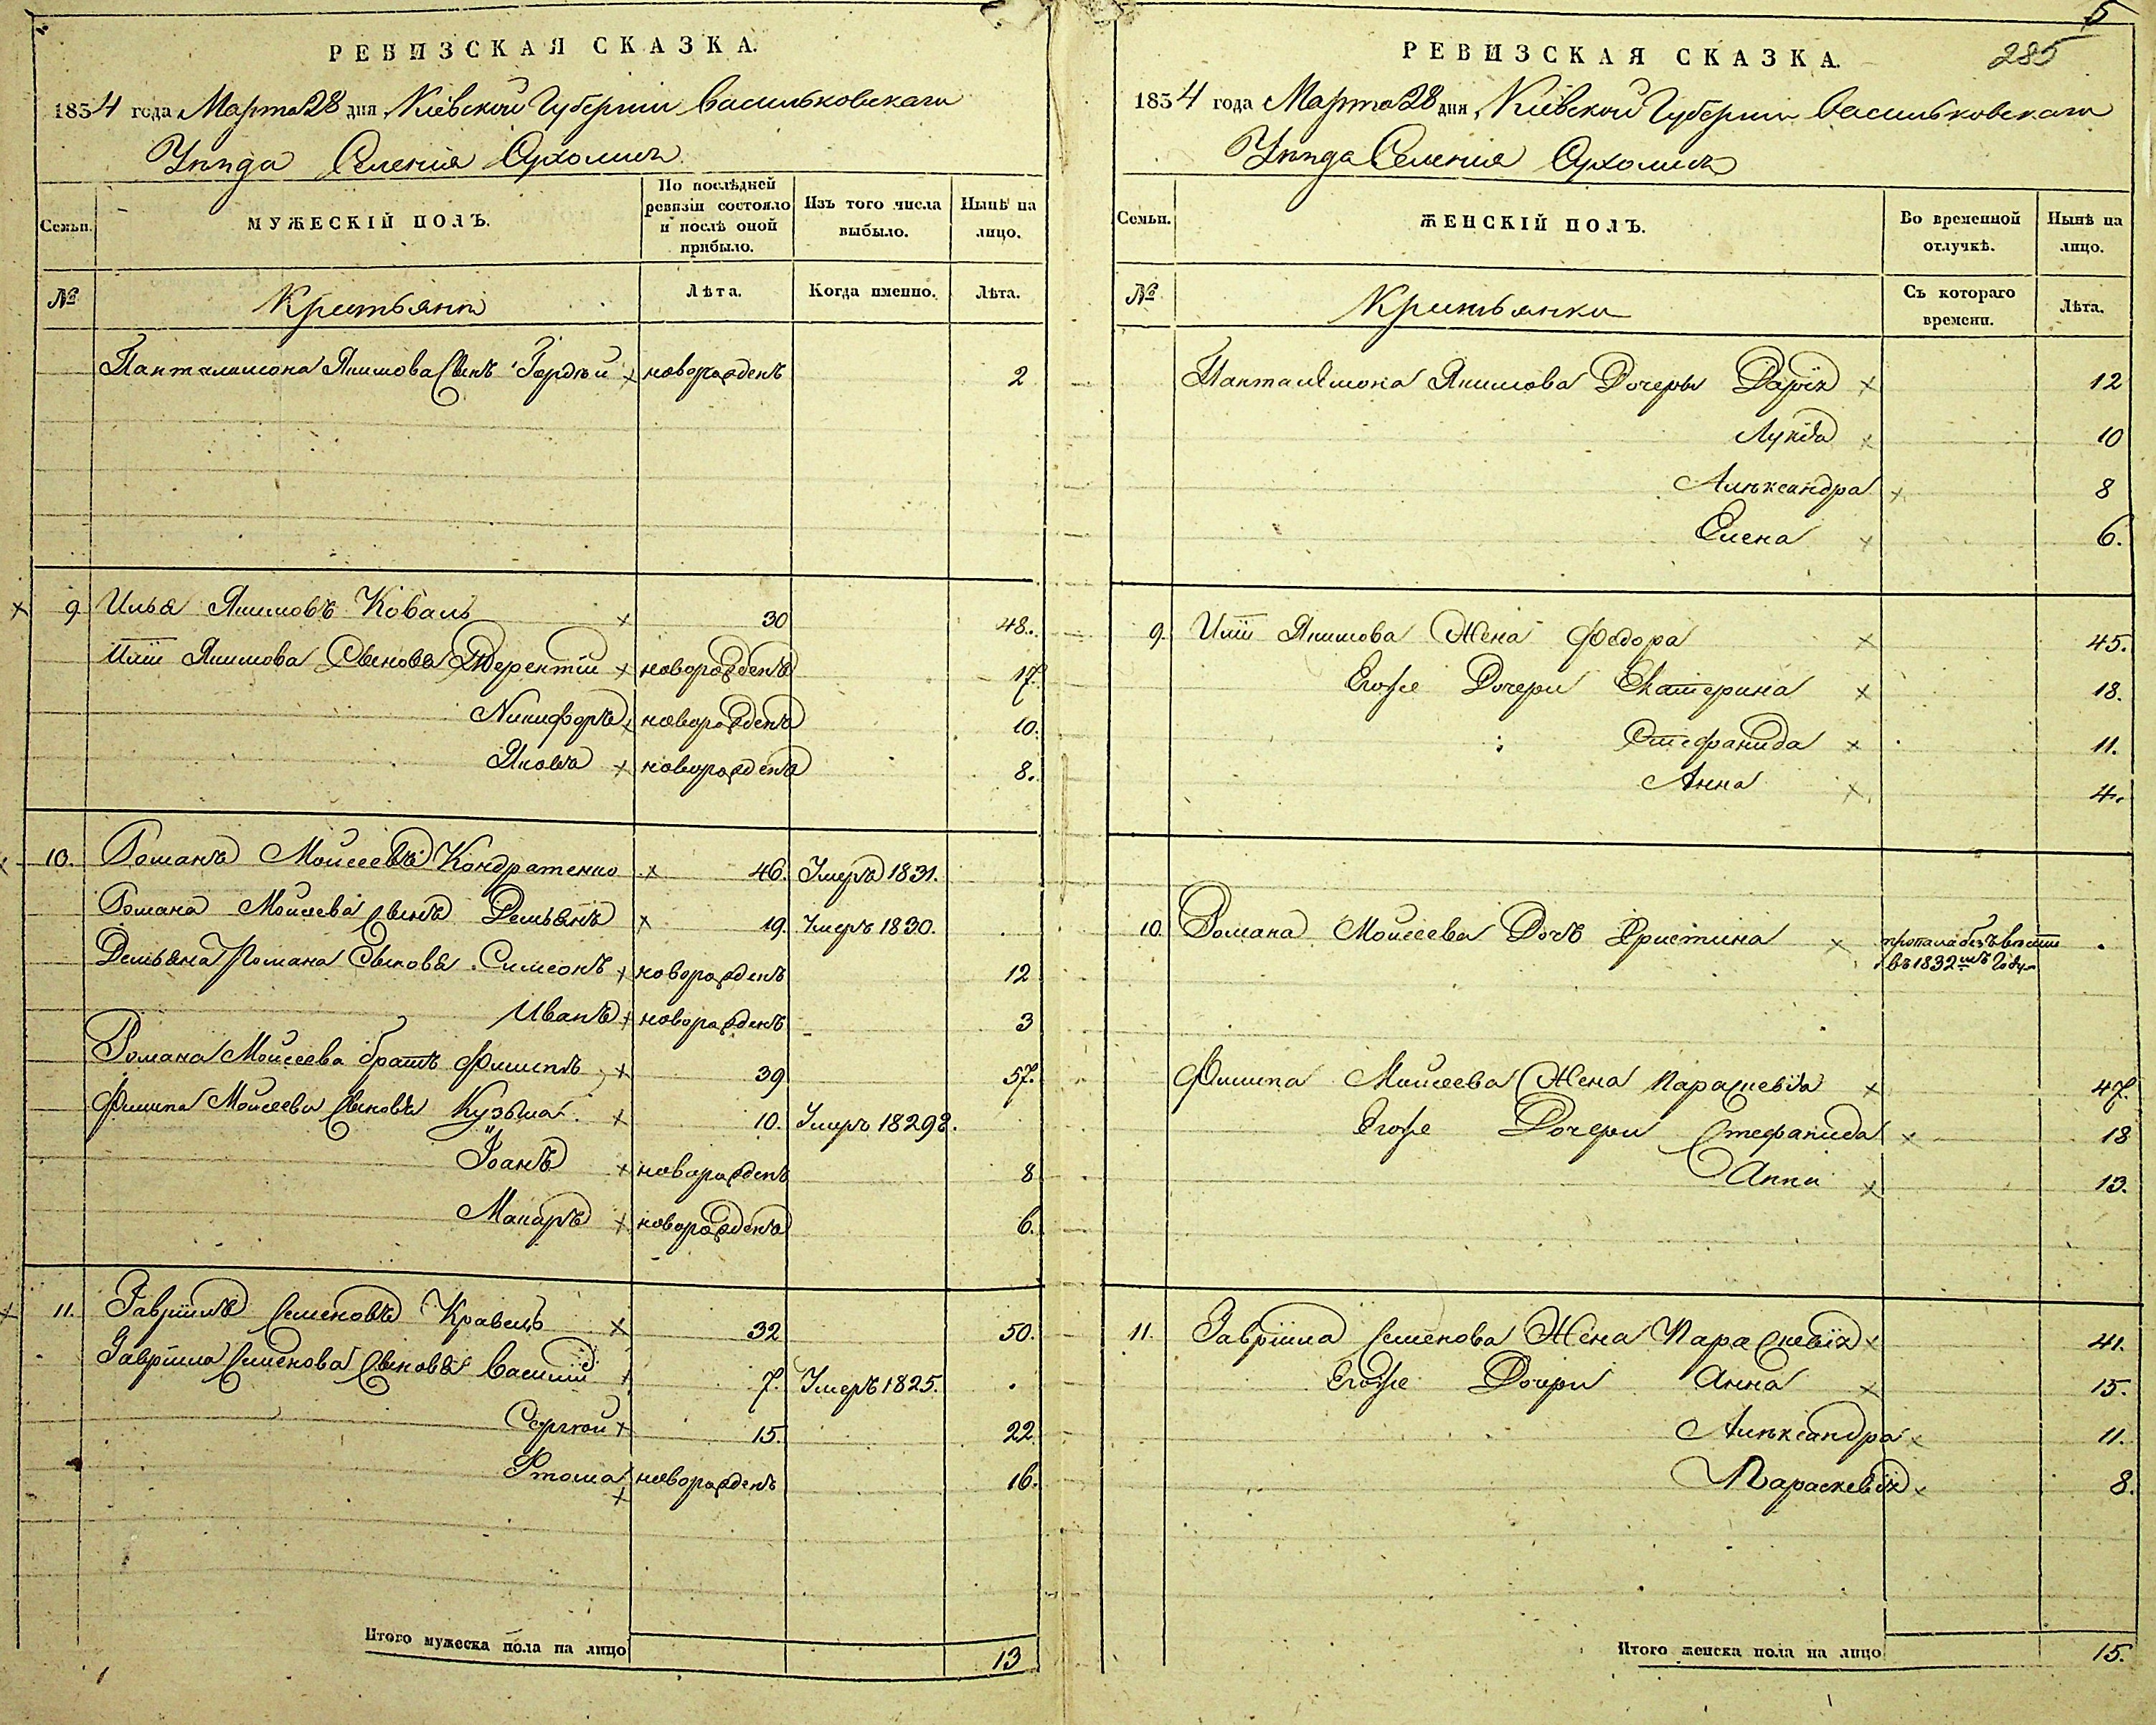 РЕВИЗСКАЯ СКАЗКА.
1834 года Марта 28 дня Кіевской Губерніи Васильковскаго
Уѣзда Селенія Сухолисъ
Семьи.
МУЖЕСКІЙ ПОЛЪ.
По послѣдней ревизіи состояло и послѣ оной прибыло.
Изъ того числа выбыло.
Нынѣ на лицо.
№
Крестьяни
Лѣта.
Когда именно.
Лѣта.
Панталимона Якимова Сынъ Гордѣй х новорожденъ 2
х 9. Илья Якимовъ Коваль х 30 48.
Иліи Якимова Сыновья Терентій х новорожденъ 17.
Никифоръ х новорожденъ 10.
Яковъ х новорожденъ 8.
х 10. Романъ Моисеевъ Кондратенко х 46. Умеръ 1831.
Романа Моисеева Сынъ Демьянъ х 19. Умеръ 1830.
Демьяна Романа Сыновья Симеонъ х новорожденъ 12
Иванъ х новорожденъ 3
Романа Моисеева братъ Филипъ х 39 57.
Филипа Моисеева Сыновья Кузьма х 10. Умеръ 1829
Іоанъ х новорожденъ 8
Макаръ х новорожденъ 6.
х 11. Гавріилъ Семеновъ Кравецъ х 32 50.
Гавріила Семенова Сыновья Василій х 7. Умеръ 1825.
Сергѣй х 15. 22
новорожденъ 16.
х
Итого мужеска пола на лицо 13
5
285
РЕВИЗСКАЯ СКАЗКА.
1834 года Марта 28 дня, Кіевской Губерніи Васильковскаго
Уѣзда Селенія Сухолисъ
Семьи.
ЖЕНСКІЙ ПОЛЪ.
Во временной отлучкѣ.
Нынѣ на лицо.
№
Крестьянки
Съ котораго времени.
Лѣта.
Панталимона Якимова Дочеры Дарія х 12
Лукія х 10
Алѣксандра х 8
Елена х 6.
9. Иліи Якимова Жена Федора х 45.
Егоже Дочери Екатерина х 18.
Стефанида х 11.
Анна х 4.
10. Романа Моисеева Дочь Христина х пропала безъ вѣсти
въ 1832мъ Году
Филипа Моисеева Жена Параскевія х 47.
Егоже Дочери Стефанида х 18
Анна х 13.
11. Гавріила Семенова Жена Параскевія х 41.
Егоже Дочери Анна х 15.
Алѣксандра х 11.
Параскевія х 8.
Итого женска пола на лицо 15.